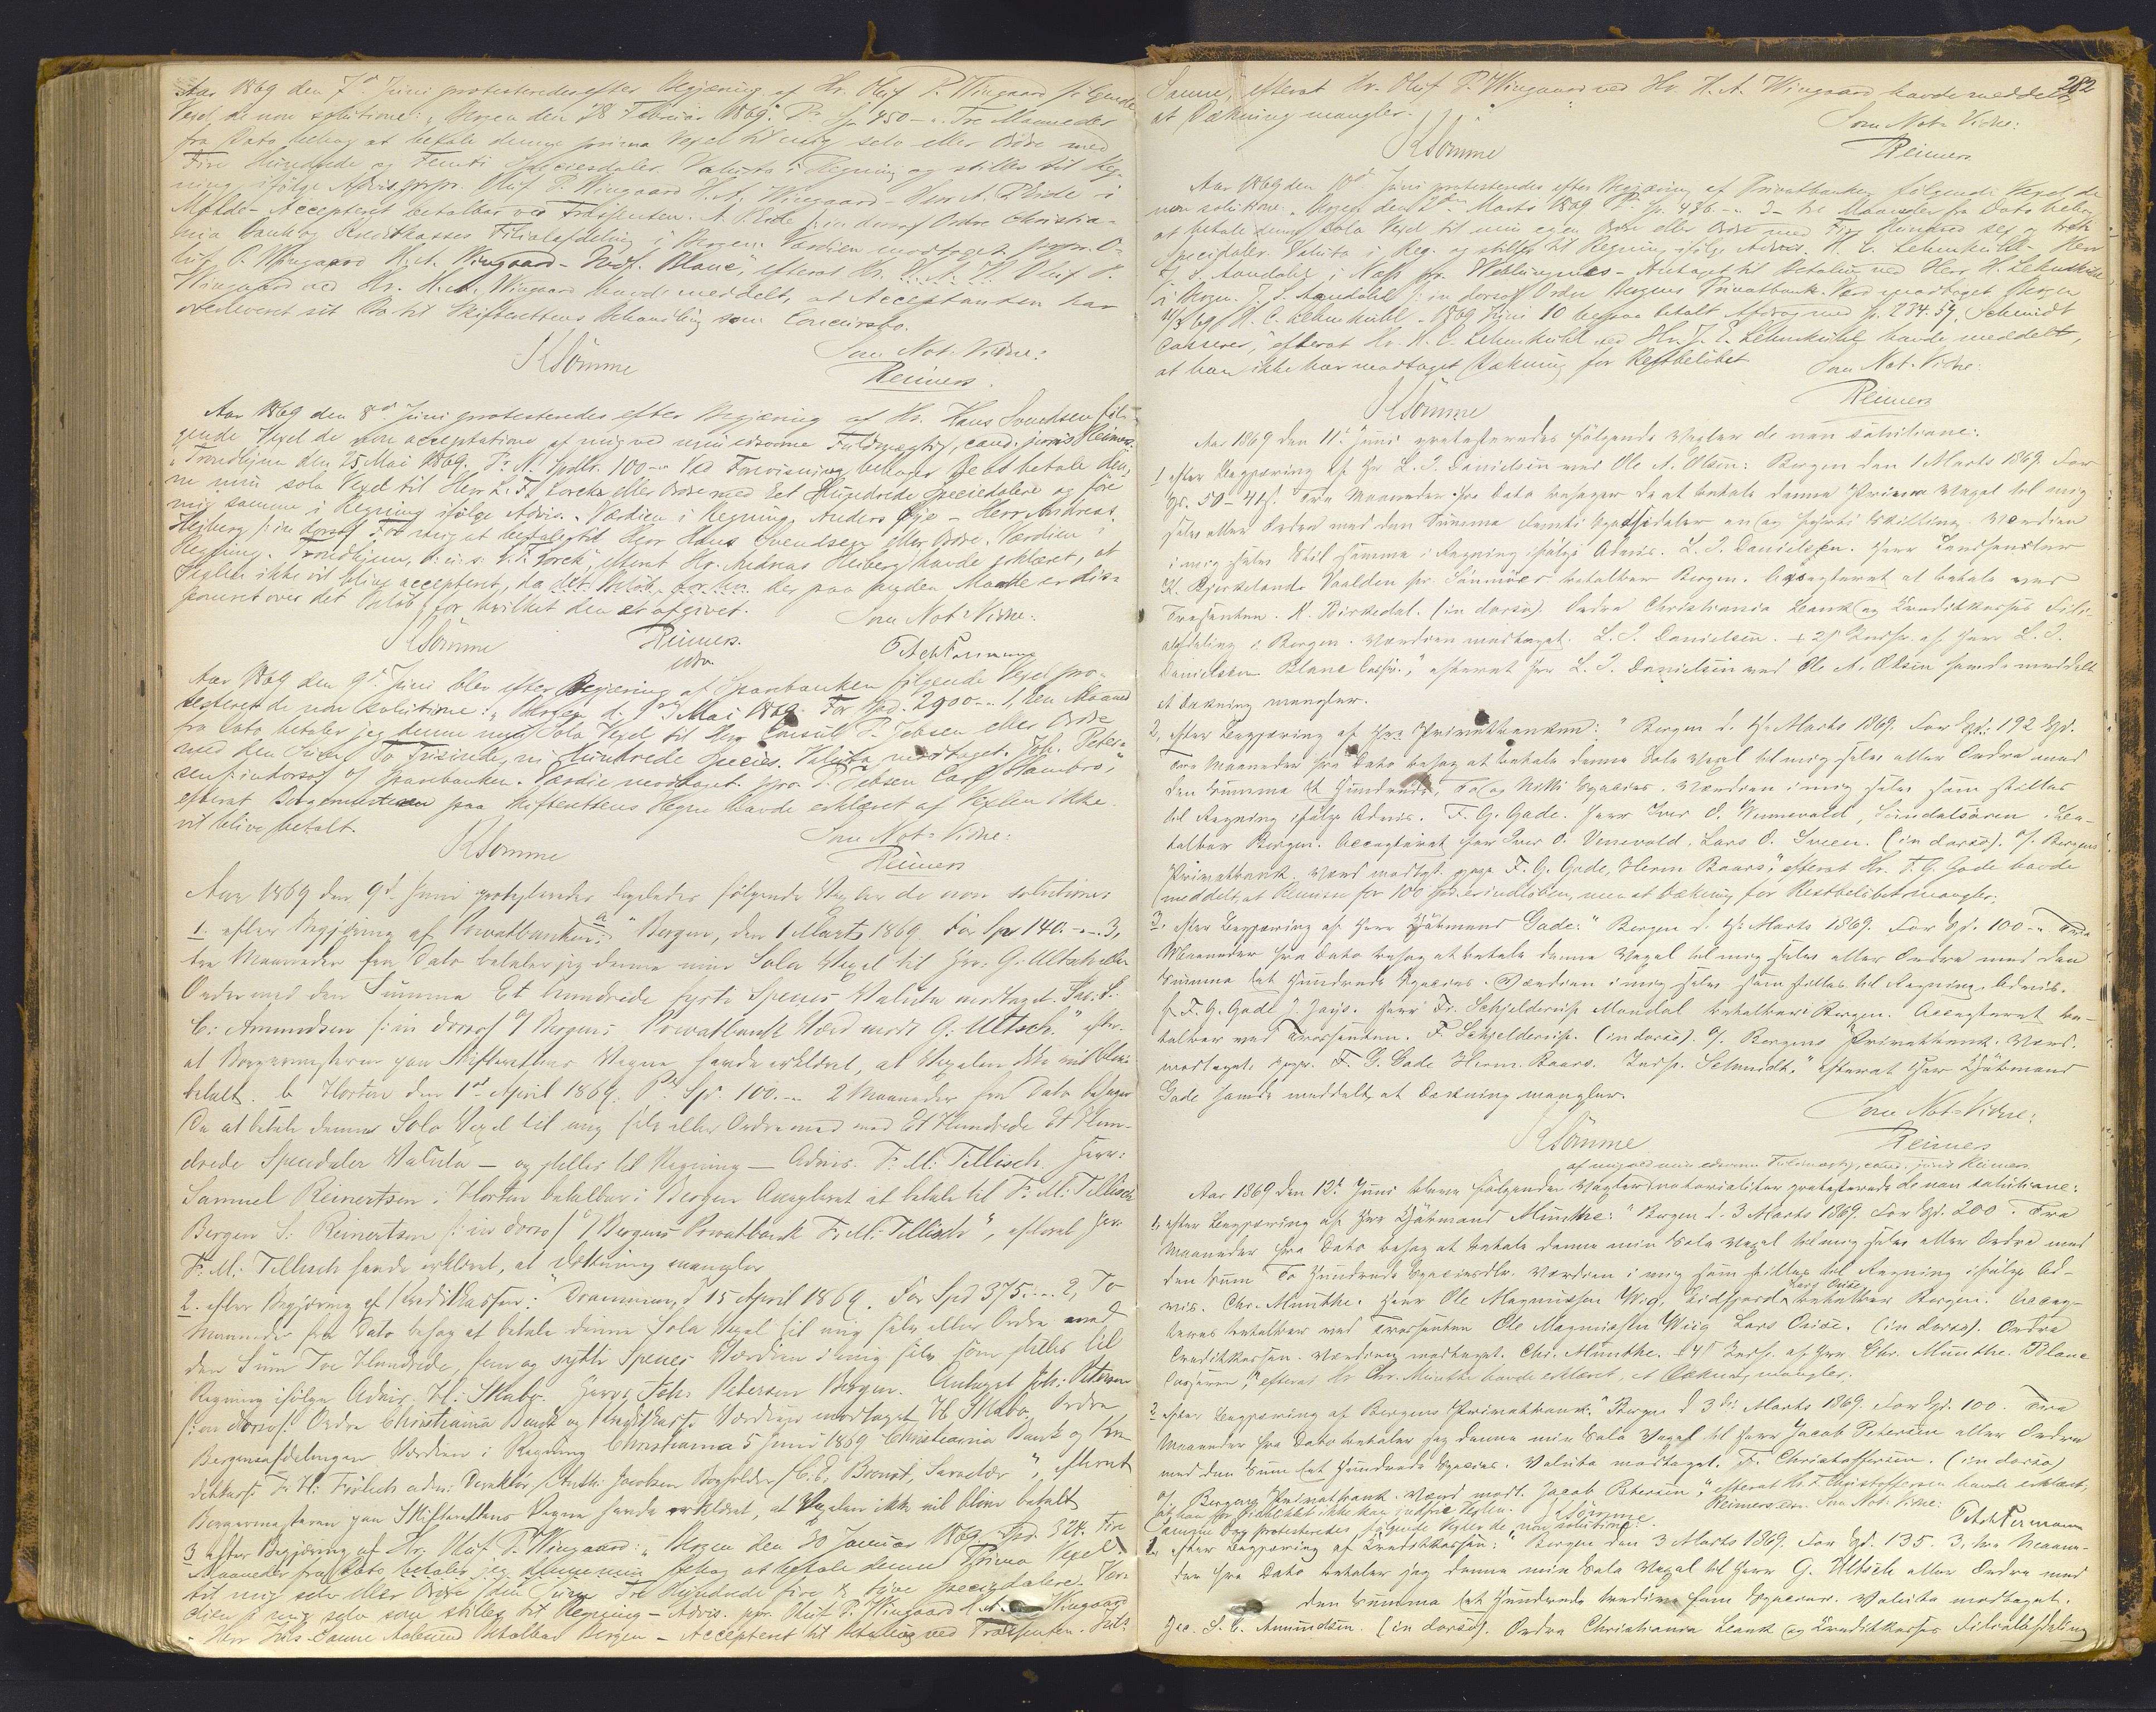 Aar 1869 den 7d Juni protesteredes efter Begjæring af Hr. Oluf P. Wingaard følgende
Vexel de non solutione: "Bergen den 28 Februar 1869. Pr. Sp 450 - Tre Maaneder
fra Dato behag at betale denne prima Vexel til mig selv eller Ordre med
Fire Hundrede og Femti Speciesdaler. Valuta i Regning og stilles til Reg-
ning ifølge Advis pr. pr. Oluf P. Wingaard H. A. Wingaard - Herr A.
Molde - Accepteret betalbar ved Trassenten. A. in dorso Ordre Christia-
nia Bank og Kreditkasses Filialafdeling i Bergen. Værdien modtaget pr. pr. O-
luf P. Wingaard H. A. Wingaard - Blanc", efterat Hr. Oluf P.
Wingaard ved Hr. H. A. Wingaard havde meddelt, at Acceptanten har
overleveret sit Bo til Skifterettens Behandling som Concursbo.
Som Not. Vidne:
KSömme
Reimers.
Aar 1869 den 8de Juni protesteredes efter Begjæring af Hr. Hans Svendsen føl-
gende Vexel de non acceptatione af mig ved min edsvorne Fuldmægtig, cand. juris Reimers:
"Trondhjem den 25 Mai 1869. Pr. Spdlr. 100 - Ved Forevisning behager De at betale den-
ne min sola Vexel til Herr L. F. Lorck eller Ordre med Et Hundrede Speciedalere og føre
mig samme i Regning ifølge Advis. Værdien i Regning. Anders - Herr Andreas
Heiberg in dorso For mig at betale til Herr Hans Svendsen eller Ordre. Værdien i
Regning. Trondhjem, Lorck", efterat Hr. Andreas Heiberg havde erklæret, at
Vexlen ikke vil blive accepteret, da det Beløb, der paa anden Maade er dis-
poneret over det Beløb, for hvilket den er afgivet.
Som Not. Vidne:
KSömme
Reimers.
Aar 1869 den 9d Juni blev efter Begjæring af Sparebanken følgende Vexel pro-
testeret de non solutione: "Bergen d. Mai 1869. For Spd. 2900 - 1, Een Maaned
fra Dato betaler jeg denne min Sola Vexel til Herr Consul P. Jebsen eller Ordre
med den Summa To Tusinde, ni Hundrede Species. Valuta modtaget. Joh. Peter-
sen in dorso O/ Sparebanken. Værdie modtaget. ppr P. Jebsen Carl Hambro",
efterat Borgermesteren paa Skifterettens Vegne havde erklæret at Vexlen ikke
vil blive betalt.
Som Not. Vidne:
KSömme
Reimers
Aar 1869 den 9d Juni protesteredes ligeledes følgende Vexler de non solutione:
1. efter Begjæring af Privatbanken: a "Bergen, den 1 Marts 1869. For Spd 140. - 3,
tre Maaneder fra Dato betaler jeg denne min Sola Vexel til Hr. G. Ultsch eller
Ordre med den Summa Et hundrede fyrte Species Valuta modtaget. Jac. S.
C. Amundsen (in dorso) O/ Bergens Privatbank Værd modt G. Ultsch." efter-
at Borgermesteren paa Skifterettens Vegne havde erklæret, at Vexelen ikke vil blive
betalt. b Horten den 1st April 1869. Pr. Spd. 100. - 2 Maaneder fra Dato behager
De at betale denne Sola Vexel til mig selv eller Ordre med med Et Hundrede Et Hun-
drede Speciedaler Valuta - og stilles til Regning - Advis. F. M. Tellisch Herr:
Samuel Reinertsen i Horten betalbar i Bergen Accepteret at betale til F. M. Tellisch
Bergen S. Reinertsen (in dorso) O/ Bergens Privatbank F. M. Tellisch", efterat Herr
F. M. Tellisch havde erklæret, at Dækning mangler
2. efter Begjæring af Kreditkassen: "Drammen d 15 April 1869. For Spd 375. - 2, To
Maaneder fra Dato behag at betale denne Sola Vexel til mig selv eller Ordre med
den Sum Tre Hundrede, fem og sytti Species Værdien i mig selv som stilles til
Regning ifølge Advis. H. Skabo. Herr Joh. Petersen Bergen. Antaget Joh. Petersen
(in dorso) Ordre Christiania Bank og Kreditkasse Værdien modtaget H. Skabo. Ordre
Bergensafdelingen Værdien i Regning Christiania 5 Juni 1869. Christiania Bank og Kre-
ditkasse F. H. Frölich adm. Direktör, Jacobsen Bogholder", efterat
Borgermesteren paa Skifterettens Vegne havde erklæret, at Vexelen ikke vil blive betalt
3 efter Begjæring af Hr. Oluf P. Wingaard: "Bergen den 30 Januar 1869. Spd. 324. Fire
Maaneder fra Dato betaler jeg denne min behag at betale denne Prima Vexel
til mig selv eller Ordre den Summa Tre Hundrede fire & tyve Speciesdalere. Vær-
dien i mig selv som stilles til Regning - Advis. ppr. Oluf P. Wingaard H. A. Wingaard
- Herr Jens Sanne Aalesund betalbar Bergen - Accepteret til Betaling ved Trassenten. Jens
282
Sanne," efterat Hr. Oluf P. Wingaard ved Hr. H. A. Wingaard havde meddelt
at Dækning mangler.
Som Not. Vidne:
KSömme
Reimers
Aar 1869 den 10d Juni protesteredes efter Begjæring af Privatbanken følgende Vexel de
non solutione: "Bergen den 2den Marts 1869 Sp. 486. - 3 - tre Maaneder fra Dato behag
at betale denne Sola Vexel til min egen Ordre eller Ordre med Fire Hundred sex og otteti
Speciedaler. Valuta i Reg. og stilles til Regning ifølge Advis. H. C. Lehmkuhl - Herr
J. S. Aandahl i Næs pr. Veblungsnes - Antaget til Betaling ved Herr H. Lehmkuhl
i Bergen. J. S. Aandahl in dorso Ordre Bergens Privatbank. Værd modtaget Bergen
H. C. Lehmkuhl - 1869 Juni 10 herpaa betalt Afdrag med Sp. 284. 54. Schmidt
Casserer, efterat Hr. H. C. Lehmkuhl ved Hr. J. E. Lehmkuhl havde meddelt,
at han ikke har modtaget Dækning for Restbeløbet
Som Not. Vidne:
KSömme
Reimers
Aar 1869 den 11d Juni protesteredes følgende Vexler de non solutione:
1 efter Begjæring af Hr L. J. Danielsen ved Ole A. Olsen: Bergen den 1 Marts 1869. For
Sp. 50 - 41 s. Tre Maaneder fra Dato behager De at betale denne Prima Vexel til mig
selv eller Ordre med den Summa Femti Speciesdaler en og fyrti Skilling. Værdien
i mig selv Stil samme i Regning ifølge Advis. L. J. Danielsen. Herr Landhandler
K. Bjerkelands Volden pr. Søndmøes betalbar Bergen. Accepteret at betale ved
Trassenten. K. Birkedal. (in dorso). Ordre Christiania Bank og Kreditkasses Fili-
alafdeling i Bergen. Værdien modtaget. L. J. Danielsen. af Herr L. J.
Danielsen Blanc Cassr.", efterat Hr L. J. Danielsen ved Ole A. Olsen havde meddelt
at Dækning mangler.
2, efter Begjæring af Hr. Privatbanken: "Bergen d. 4 Marts 1869. For Spd. 192 Spd.
Tre Maaneder fra Dato behag at betale denne Sola Vexel til mig selv eller Ordre med
den Summa Et Hundrede To og Nitti Species. Værdien i mig selv som stilles
til Regning ifølge Advis. F. G. Gade. Herr Iver O. Wennevold, Söndalsören be-
talbar Bergen. Accepteret Iver O. Vennevold. Lars O. Sveen. (in dorso). O/ Bergens
Privatbank. Værd modtgt. pppr F. G. Gade, Herm Baars", efterat Hr. F. G. Gade havde
meddelt, at Rimesse for 100 Spd. er indløben, men at Dækning for Restbeløbet mangler.
3. efter Begjæring af Herr Gade: "Bergen d. 4 Marts 1869. For Spd. 100 - Tre
Maaneder fra Dato behag at betale denne Vexel til mig selv eller Ordre med den
Summa Et Hundrede Species. Værdien i mig selv som stilles til Regning. Advis.
F. G. Gade Herr Fr. Schjelderup Mandal betalbar i Bergen. Accepteret be-
talbar ved Trassenten. F. Schjelderup. (in dorso). O/ Bergens Privatbank. Værd.
modtaget. pppr. F. G. Gade Herm. Baars. Schmidt," efterat Herr
Gade havde meddelt, at Dækning mangler.
Som Not. Vidne:
KSömme
Reimers
af mig ved min edsvorne Fuldmægtig, cand. juris Reimers
Aar 1869 den 12d Juni bleve følgende Vexler notorialiter protesterede de non solutione:
1, efter Begjæring af Herr Munthe: "Bergen d. 3 Marts 1869. For Spd. 200. Tre
Maaneder fra Dato behag at betale denne min Sola Vexel til mig selv eller Ordre med
den Sum To Hundrede Speciesdlr. Værdien i mig som stilles til Regning ifølge Ad-
vis. Chr. Munthe. Herr Ole Magnussen Wiig, Eidfjord betalbar Bergen. Accep-
teres betalbar ved Trassenten Ole Magnussen Wiig Lars Onsøe. (in dorso). Ordre
Creditkassen. Værdien modtaget. Chr. Munthe. af Herr Chr. Munthe. Blanc
Casserer," efterat Hr Chr. Munthe havde erklæret, at Dækning mangler.
2 efter Begjæring af Bergens Privatbank: "Bergen d 3die Marts 1869. For Spd. 100. Tre
Maaneder fra Dato betaler jeg denne min Sola Vexel til Herr Jacob Petersen eller Ordre
med den Sum Et Hundrede Species. Valuta modtaget. F. Christoffersen. (in dorso)
O/ Bergens Privatbank. Værd modt. Jacob Petersen", efterat Hr. F. Christoffersen havde erklæret,
at han for Øieblikket ikke kan indfrie Vexlen. KSömme Reimers Som Not. Vidne:
Samme Dag protesteredes følgende Vexler de non solutione:
1. efter Begjæring af Creditkassen: "Bergen den 3 Marts 1869. For Spd. 135. 3, tre Maane-
der fra Dato betaler jeg denne min Sola Vexel til Herr G. Ultsch eller Ordre med
den Summa Et Hundrede tredive fem Species. Valuta modtaget.
Jac. S. C. Amundsen. (in dorso). Ordre Christiania Bank og Kreditkasses Filialafdeling